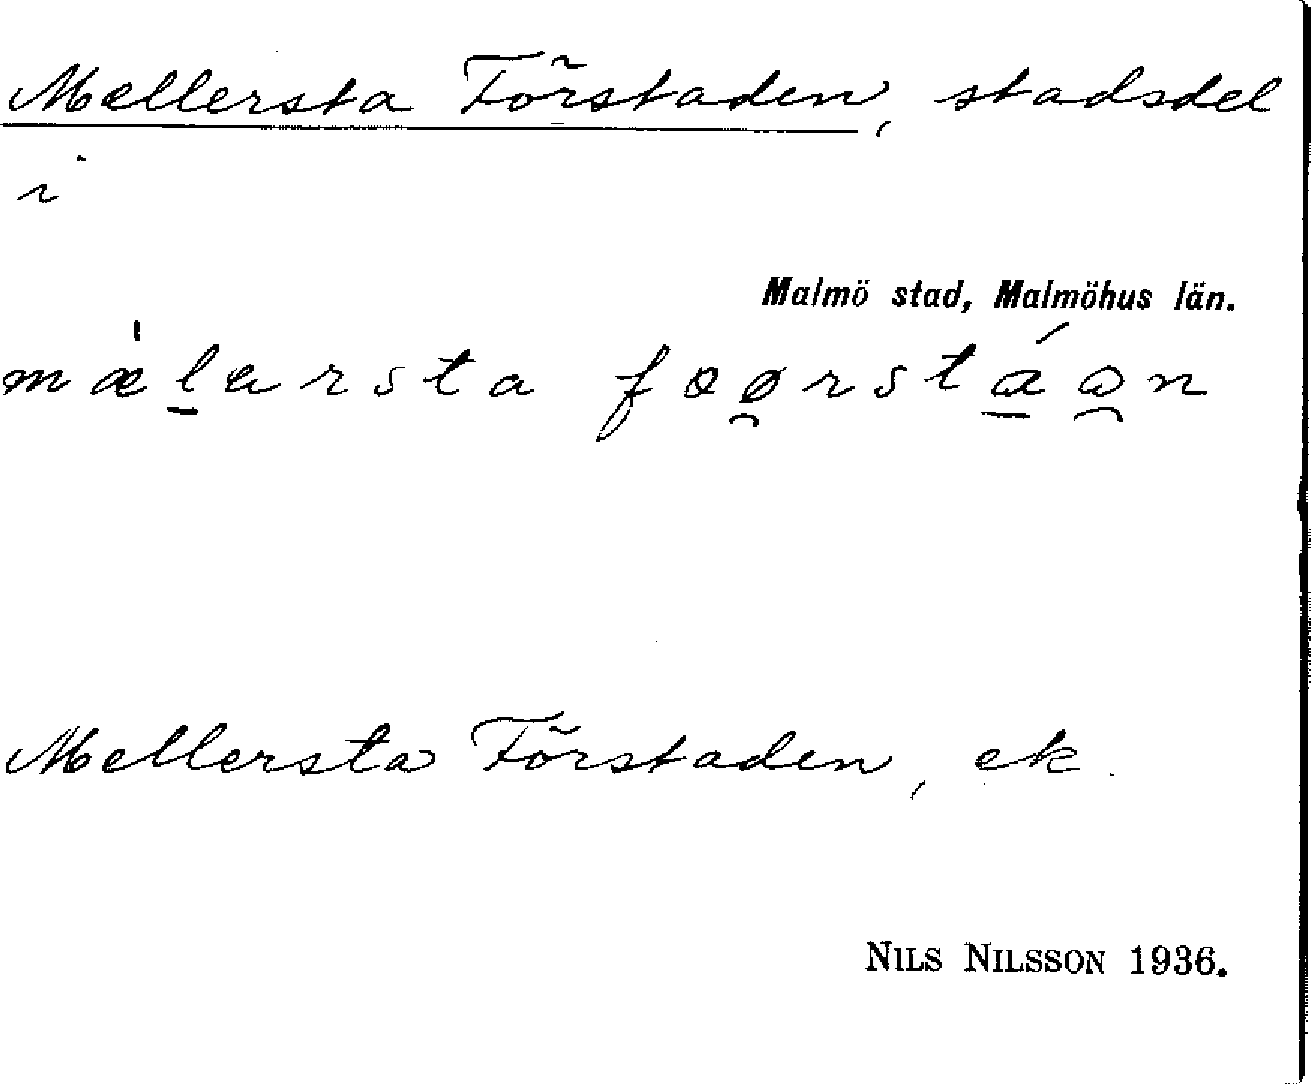 Mellersta Förstaden, stadsdel
i
Malmö stad, Malmöhus län.
mǽl̠arsta føø̯rstá̠ən
Mellersta Förstaden, ek.
NILS NILSSON 1936.